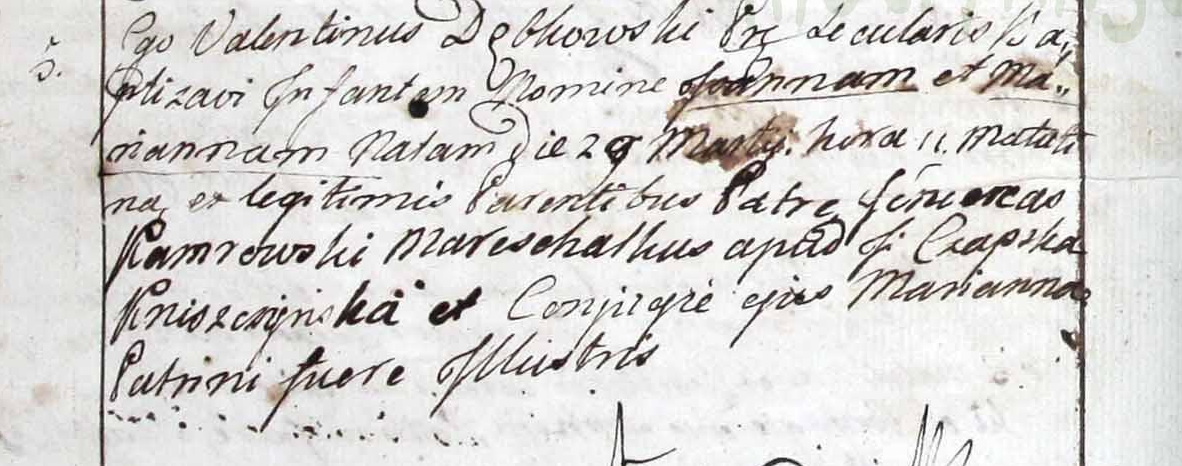 Ego Valentinus Dębkowski Prę Secularis Ba„
5. ptizavi Infantem Nomine Joannam et Ma„
riannam Natam Die 29 Martij. hora 11. matuti
na ex legitimis Parentibus Patre
Kamrowski Mareschalkus apud Czapska
et Conjuge ejus Marianna
Patrini fuere Illustris